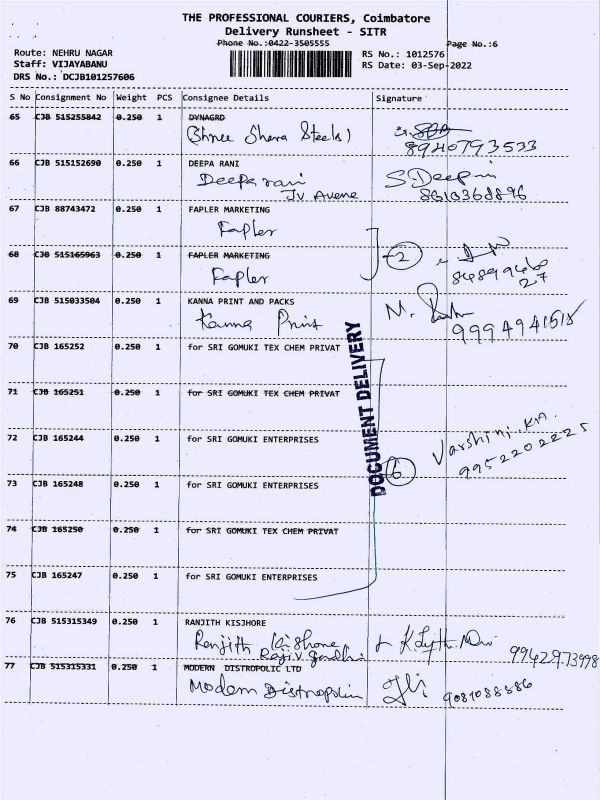 THE PROFESSIONAL COURIERS, Coimbatore
Delivery Runsheet - SITR
Phone No.:0422-3505555
Page No.:6
Route: NEHRU NAGAR
RS No.: 1012576
Staff: VIJAYABANU
RS Date: 03-Sep-2022
DRS No.: DCJB101257606
S No Consignment No Weight PCS Consignee Details Signature
65 CJB 515255842 0.250 1 DYNAGRD
(Shree Shara Steels)
8940793533
66 CJB 515152690 0.250 1 DEEPA RANI
Deepa rani S.Deepa
Jv Avene 8610368896
67 CJB 88743472 0.250 1 FAPLER MARKETING
Fapler
2
68 CJB 515165963 0.250 1 FAPLER MARKETING
Fapler
27
69 CJB 515033504 0.250 1 KANNA PRINT AND PACKS
Kanna Print M.
9994941518
70 CJB 165252 0.250 1 for SRI GOMUKI TEX CHEM PRIVAT
DOCUMENT DELIVERY
71 CJB 165251 0.250 1 for SRI GOMUKI TEX CHEM PRIVAT
72 CJB 165244 0.250 1 for SRI GOMUKI ENTERPRISES
Varshini.KM.
6 9952202225
73 CJB 165248 0.250 1 for SRI GOMUKI ENTERPRISES
74 CJB 165250 0.250 1 for SRI GOMUKI TEX CHEM PRIVAT
75 CJB 165247 0.250 1 for SRI GOMUKI ENTERPRISES
76 CJB 515315349 0.250 1 RANJITH KISJHORE
Ranjith Kishone
Rajiv gandhi 9942973998
77 CJB 515315331 0.250 1 MODERN DISTROPOLIC LTD
Modern Distropolin 9081088886